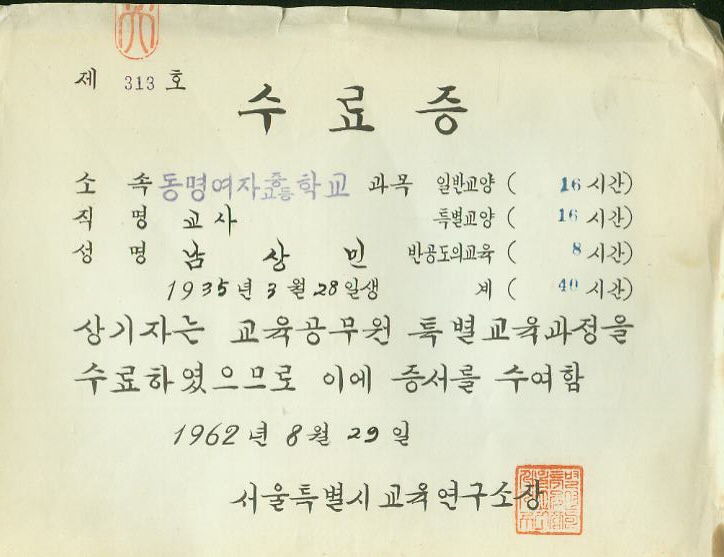 제 313 호
수료증
소속 동명여자중고등학교 과목 일반교양 ( 16 시간)
직명 교사 특별교양 ( 16 시간)
성명 남상민 반공도의교육 ( 8 시간)
1935년 3월 28일생 계 ( 40 시간)
상기자는 교육공무원 특별교육과정을
수료하였으므로 이에 증서를 수여함
1962년 8월 29일
서울특별시교육연구소장